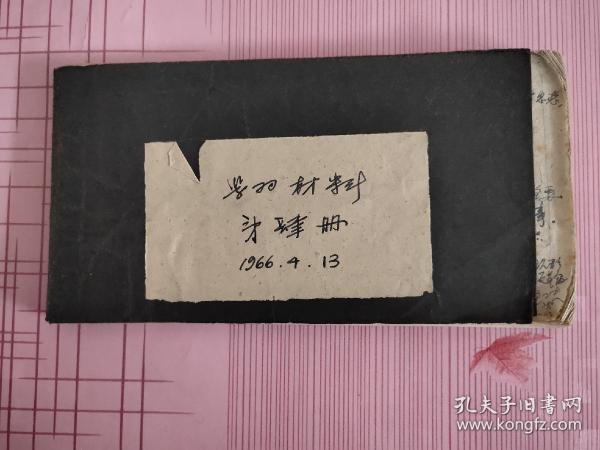 学习材料
第肆册
1966.4.13
孔夫子旧书网
www.kongfz.com